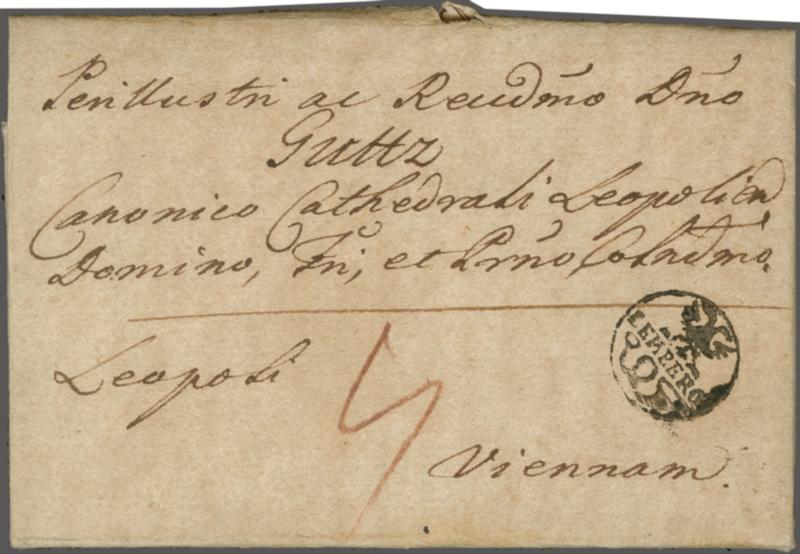 Perillustri ac Reudmo Dno
Guttz
Canonico Cathedrali Leopolien
Domino, Fri, et Prno
Leopoli
4
LEMBERG
Viennam.